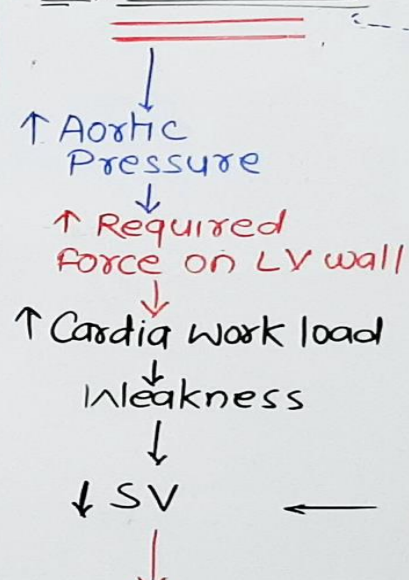 ↑ Aortic
Pressure
↑ Required
force on LV wall
↑ Cardia work load
Weakness
↓ SV